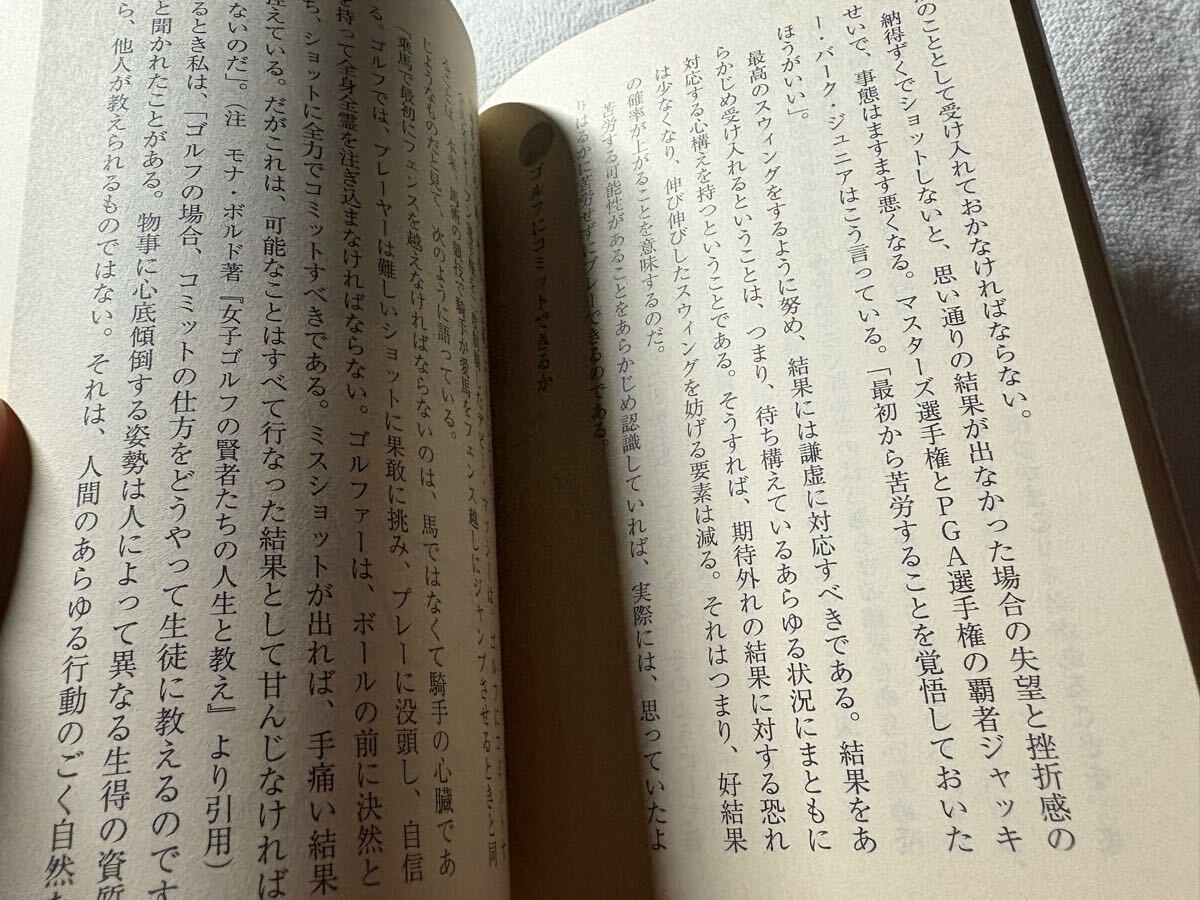 然のこととして受け入れておかなければならない。
納得ずくでショットしないと、思い通りの結果が出なかった場合の失望と挫折感の
せいで、事態はますます悪くなる。マスターズ選手権とPGA選手権の覇者ジャッキ
ー・バーク・ジュニアはこう言っている。「最初から苦労することを覚悟しておいた
ほうがいい」。
最高のスウィングをするように努め、結果には謙虚に対応すべきである。結果をあ
らかじめ受け入れるということは、つまり、待ち構えているあらゆる状況にまともに
対応する心構えを持つということである。そうすれば、期待外れの結果に対する恐れ
は少なくなり、伸び伸びしたスウィングを妨げる要素は減る。それはつまり、好結果
の確率が上がることを意味するのだ。
苦労する可能性があることをあらかじめ認識していれば、実際には、思っていたよ
りはるかに苦労せずにプレーできるのである。
ゴルフにコミットできるか
は、ゴルフにコミットす
本来、馬術の競技で騎手が愛馬をフェンス越しにジャンプさせるときと同
じようなものだと見て、次のように語っている。
「乗馬で最初にフェンスを越えなければならないのは、馬ではなくて騎手の心臓であ
る。ゴルフでは、プレーヤーは難しいショットに果敢に挑み、プレーに没頭し、自信
を持って全身全霊を注ぎ込まなければならない。ゴルファーは、ボールの前に決然と
ち、ショットに全力でコミットすべきである。ミスショットが出れば、手痛い結果
控えている。だがこれは、可能なことはすべて行なった結果として甘んじなければ
ないのだ」。(注 モナ・ボルド著『女子ゴルフの賢者たちの人生と教え』より引用)
るとき私は、「ゴルフの場合、コミットの仕方をどうやって生徒に教えるのです
と聞かれたことがある。物事に心底傾倒する姿勢は人によって異なる生得の資質
ら、他人が教えられるものではない。それは、人間のあらゆる行動のごく自然な